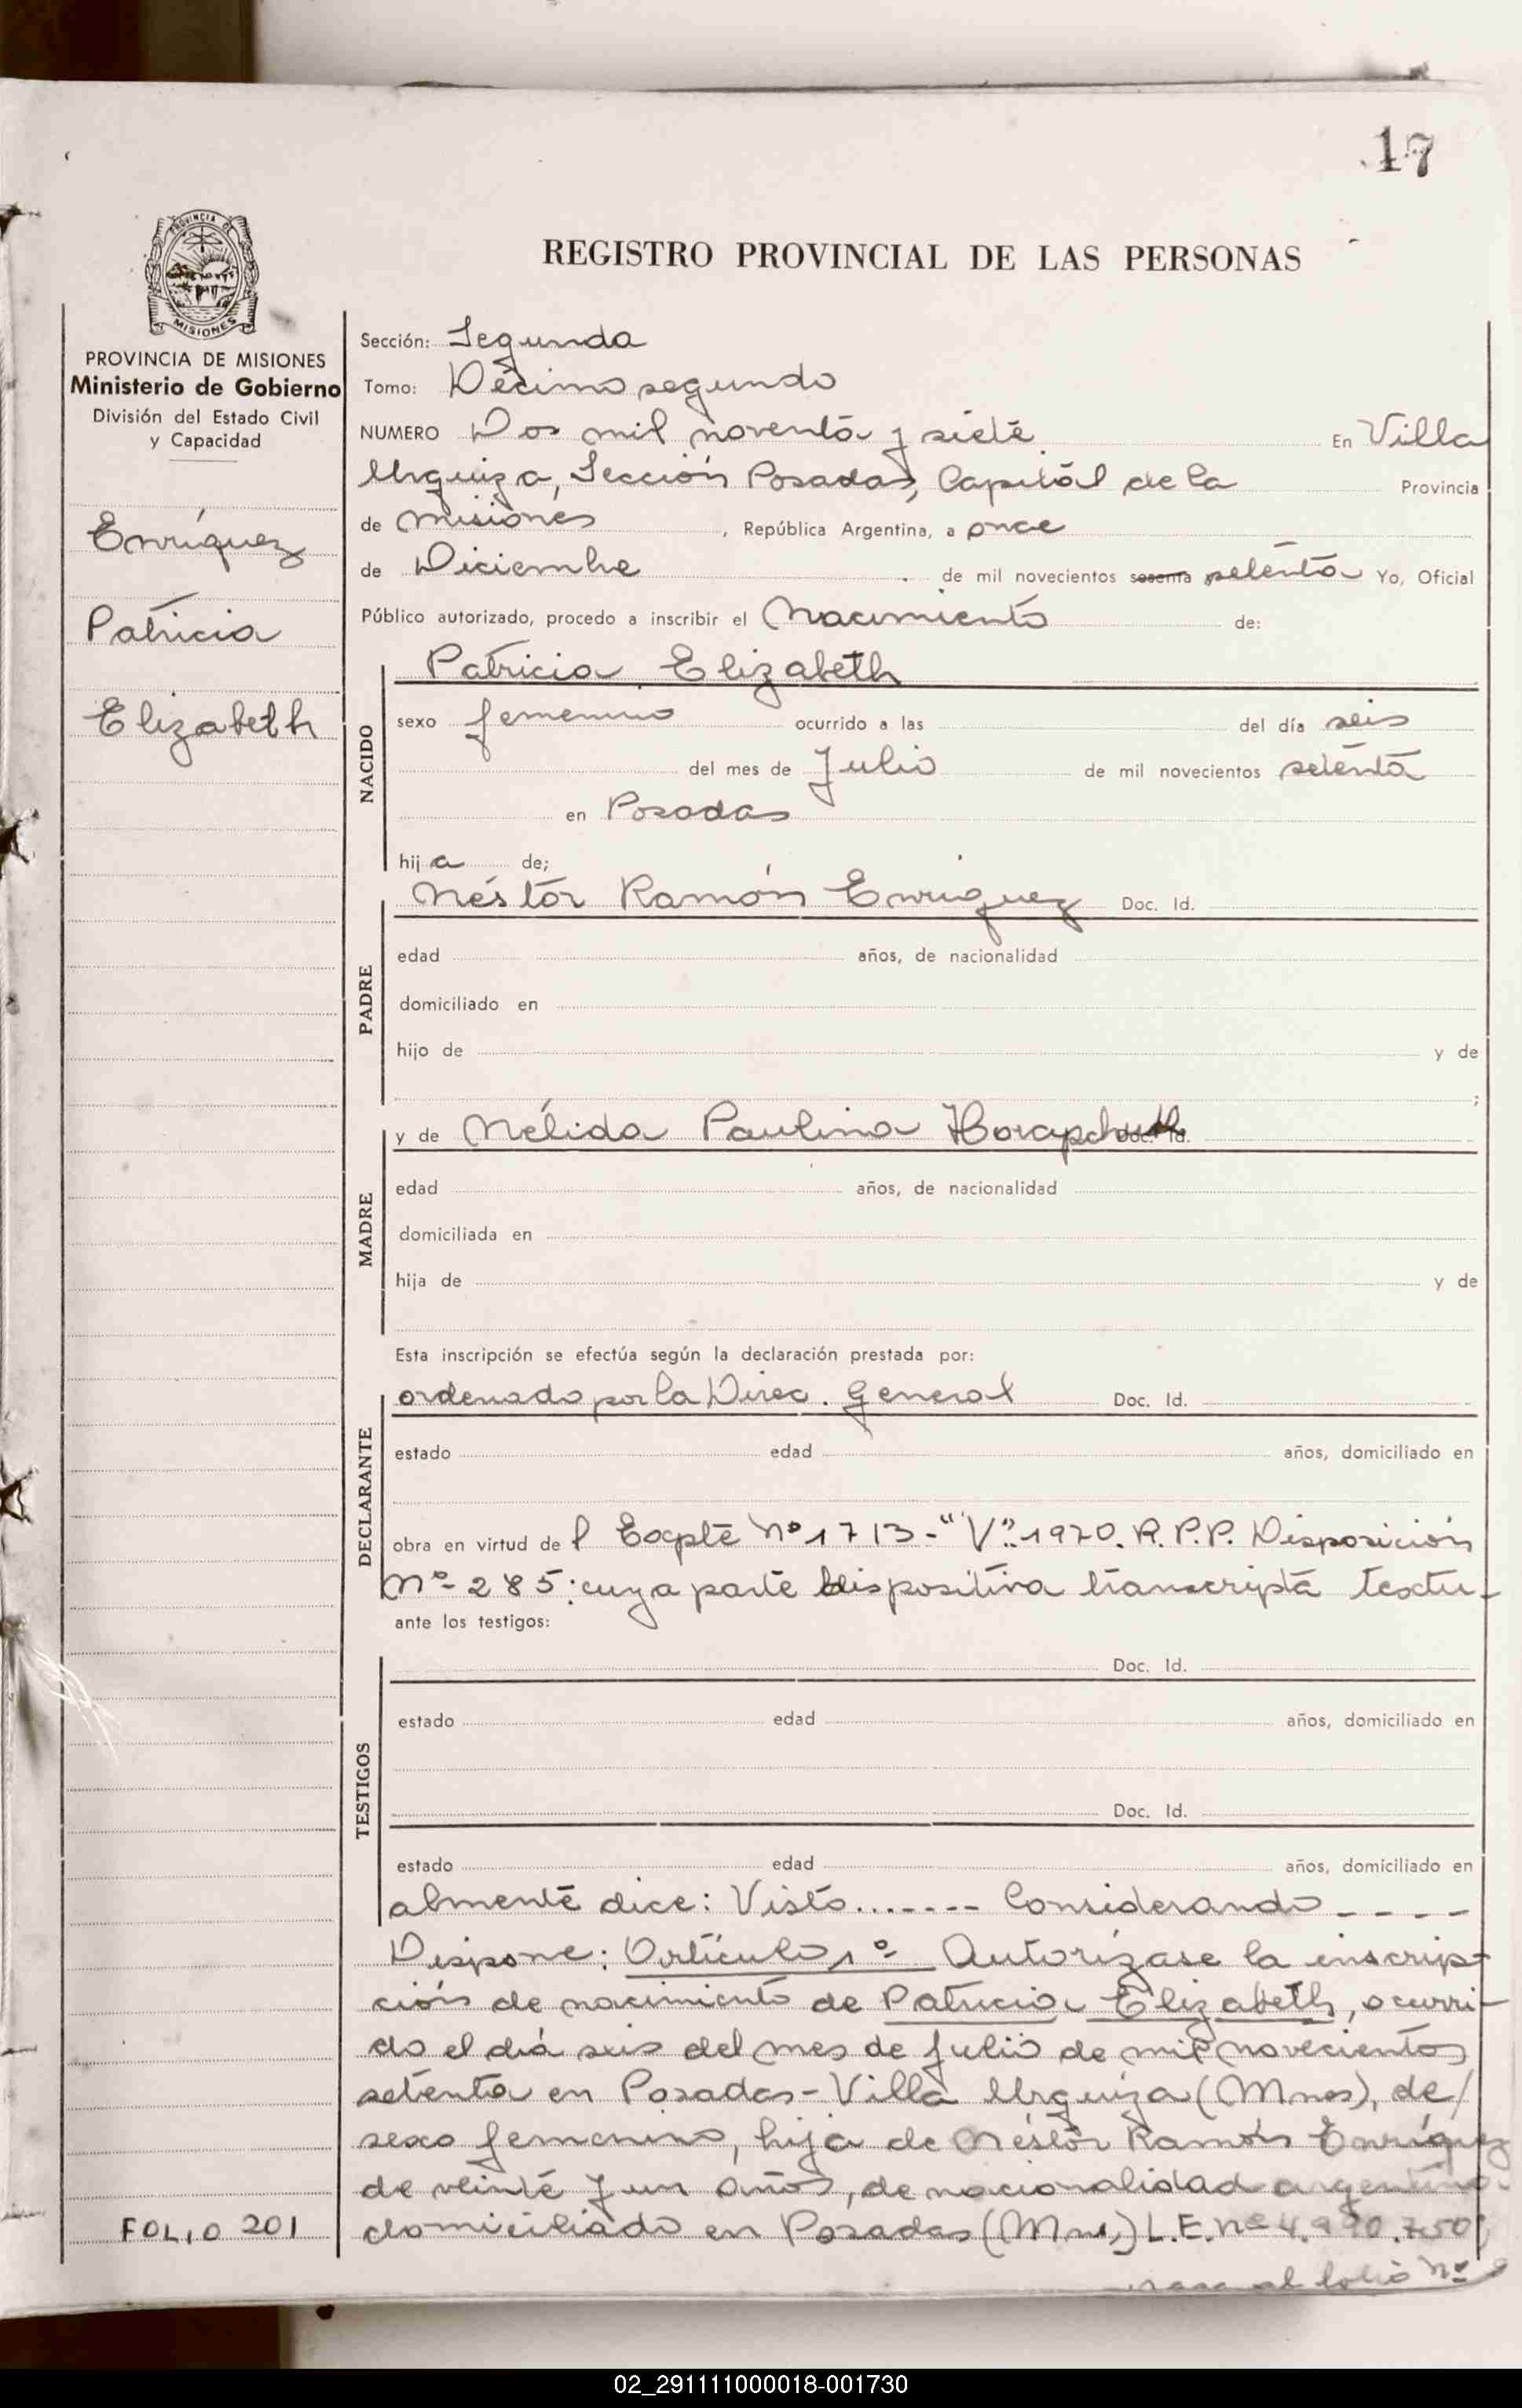 17
REGISTRO PROVINCIAL DE LAS PERSONAS
PROVINCIA DE MISIONES
Ministerio de Gobierno
División del Estado Civil
y Capacidad
Enríquez
Patricia
Elizabeth
FOLIO 201
Sección: Segunda
Tomo: Décimo segundo
NUMERO Dos mil noventa y siete En Villa
Urquiza, Sección Posadas, Capital de la Provincia
de Misiones, República Argentina, a once
de Diciembre de mil novecientos sesenta setenta Yo, Oficial
Público autorizado, procedo a inscribir el Nacimiento de:
Patricia Elizabeth
NACIDO
sexo femenino ocurrido a las del día seis
del mes de Julio de mil novecientos setenta
en Posadas
hija de;
PADRE
Néstor Ramón Enríquez Doc. Id.
edad años, de nacionalidad
domiciliado en
hijo de y de
;
MADRE
y de Nélida Paulina Doc. Id.
edad años, de nacionalidad
domiciliada en
hija de y de
Esta inscripción se efectúa según la declaración prestada por:
DECLARANTE
ordenado por la Direc. General Doc. Id.
estado edad años, domiciliado en
obra en virtud del Expte Nº 1713-"V".1970. R.P.P. Disposición
Nº- 285: cuya parte dispositiva transcripta textu-
ante los testigos:
TESTIGOS
Doc. Id.
estado edad años, domiciliado en
Doc. Id.
estado edad años, domiciliado en
almente dice: Visto....... Considerando ----
Dispone: Artículo 1º- Autorízase la inscrip-
ción de nacimiento de Patricia Elizabeth, ocurri-
do el día seis del mes de Julio de mil novecientos
setenta en Posadas-Villa Urquiza (Mnes), de/
sexo femenino, hija de Néstor Ramón Enríquez
de veinte y un años, de nacionalidad argentina
domiciliado en Posadas (Mnes) L.E. nº 4.990.750
pasa al folio Nº
02_291111000018-001730